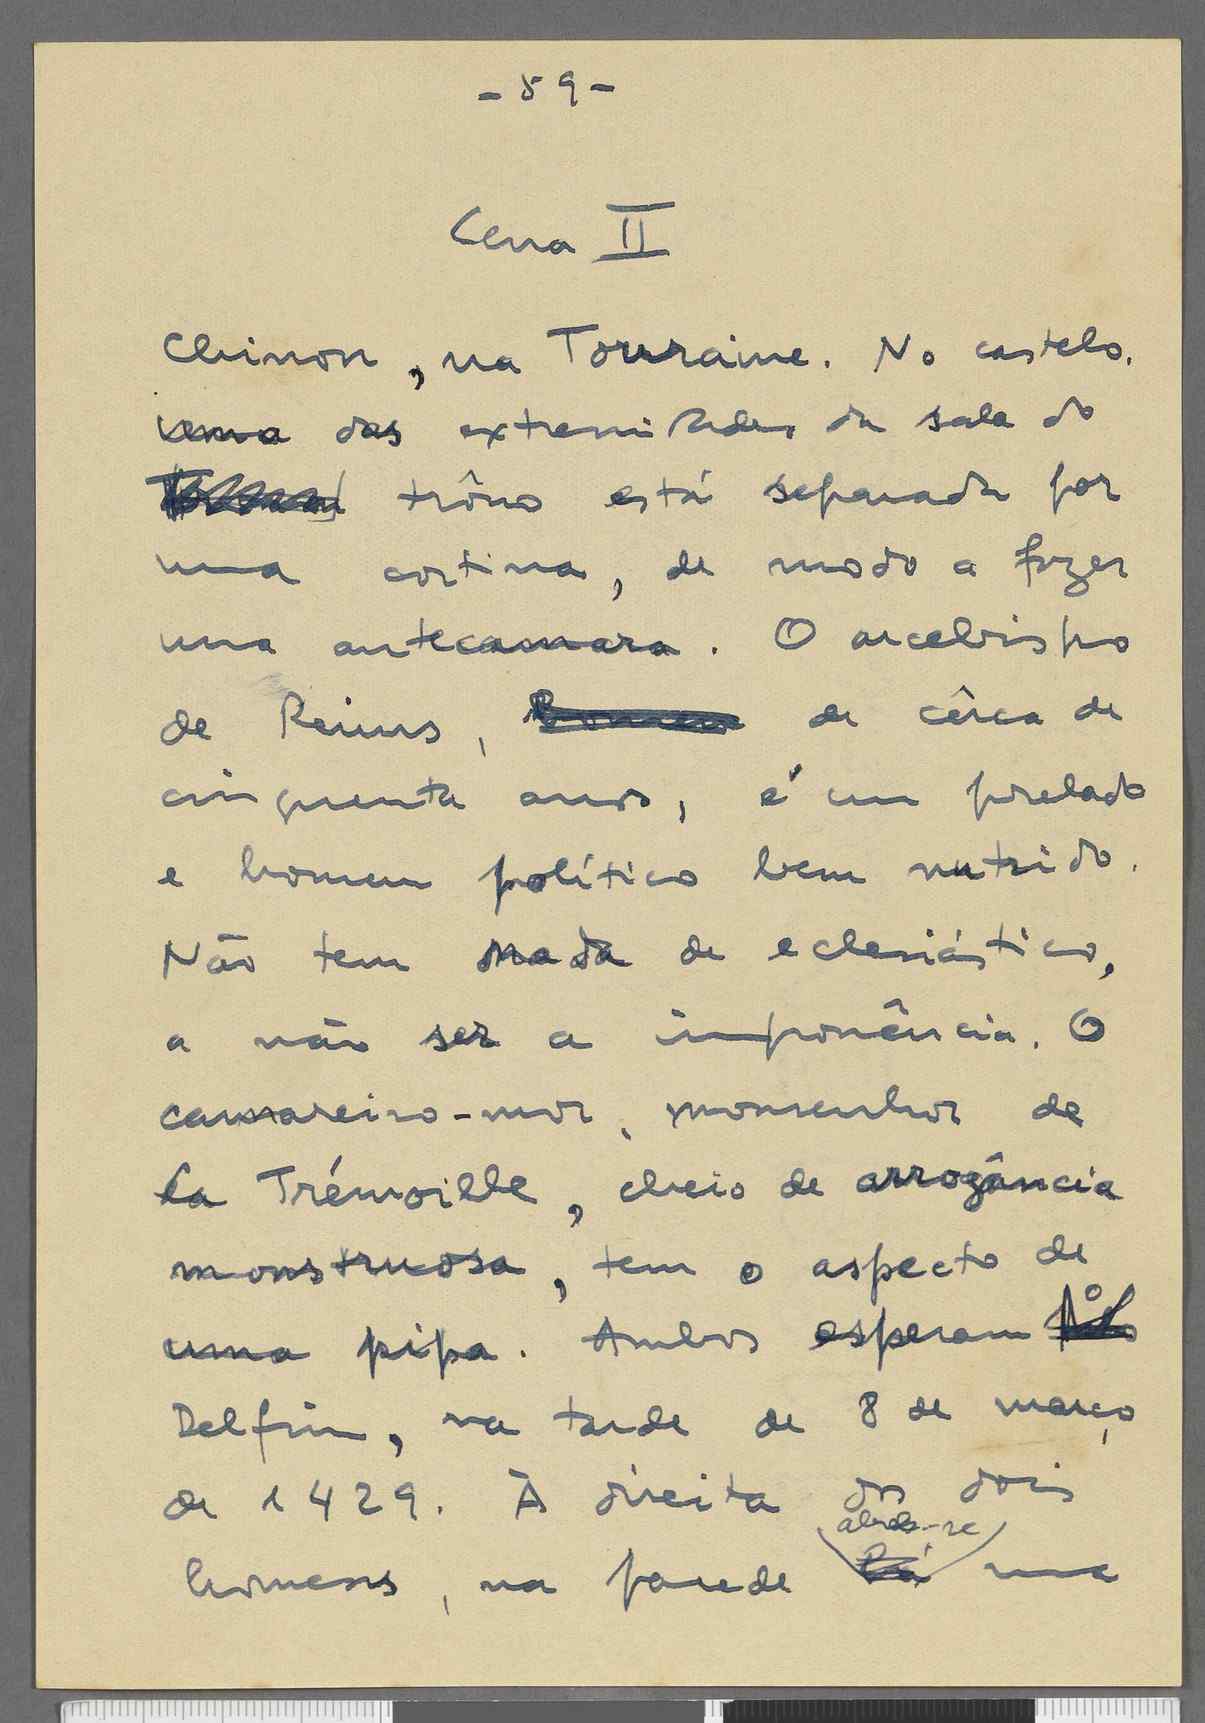 - 59 -
Cena II
Chinon, na Tourraine. No castelo.
uma das extremidades da sala do
trôno está separada por
uma cortina, de modo a fazer
uma antecamara. O arcebispo
de Reims, homem de cêrca de
cinquenta anos, é um prelado
e homem político bem nutrido.
Não tem nada de eclesiástico,
a não ser a imponência. O
camareiro-mor, monsenhor de
la Trémoille, cheio de arrogância
monstruosa, tem o aspecto de
uma pipa. Ambos esperam o
Delfim, na tarde de 8 de março
de 1429. À direita dos dois
abre-se
homens, na parede há uma